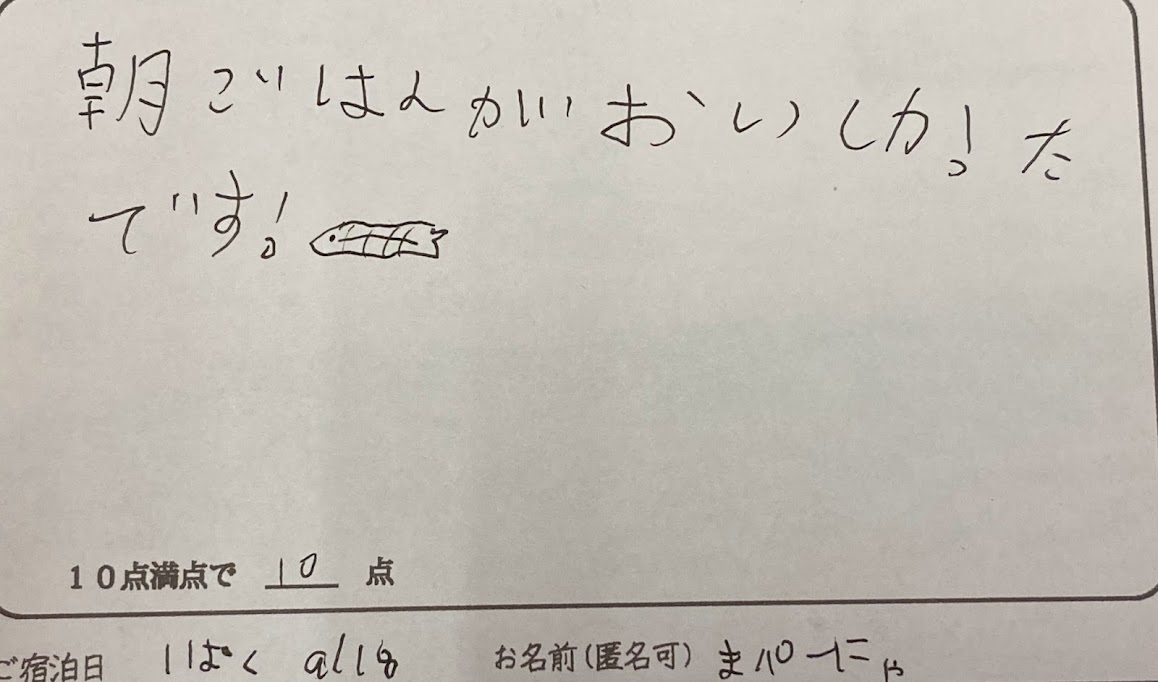 朝ごはんがおいしかった
です!
10点満点で 10 点
ご宿泊日 1ぱく お名前(匿名可)